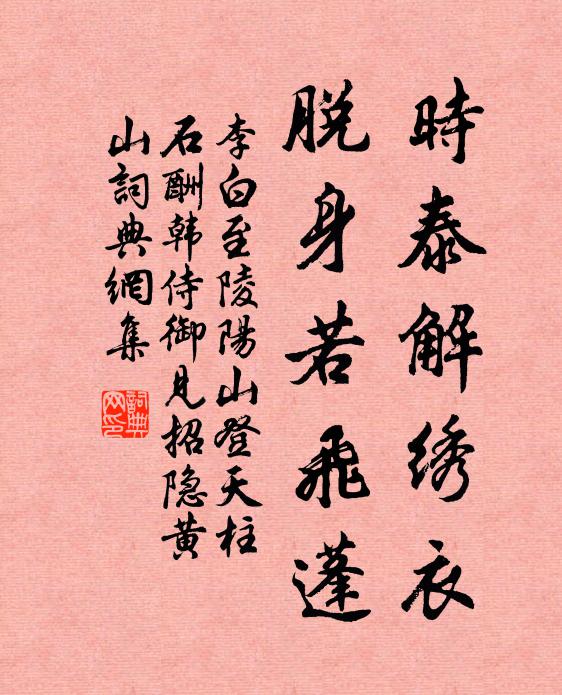 時泰解绣衣
脱身若飛蓬
李白至陵陽山登天柱
石酬韩侍御見招隐黄
山詞典網集
詞典
网印